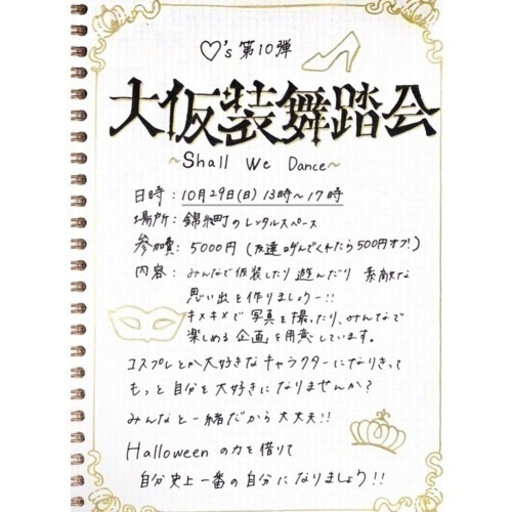 ♡'s 第10弾
大仮装舞踏会
~Shall We Dance~
日時：10月29日(日)13時〜17時
場所：錦糸町のレンタルスペース
参加費：5000円(友達呼んでくれたら500円オフ!)
内容：みんなで仮装したり遊んだり 素敵な
思い出を作りましょう〜!!
キメキメで写真を撮ったり、みんなで
楽しめる企画を用意しています。
コスプレとか大好きなキャラクターになりきって
もっと自分を大好きになりませんか?
みんなと一緒だから大丈夫!!
Halloweenの力を借りて
自分史上一番の自分になりましょう!!